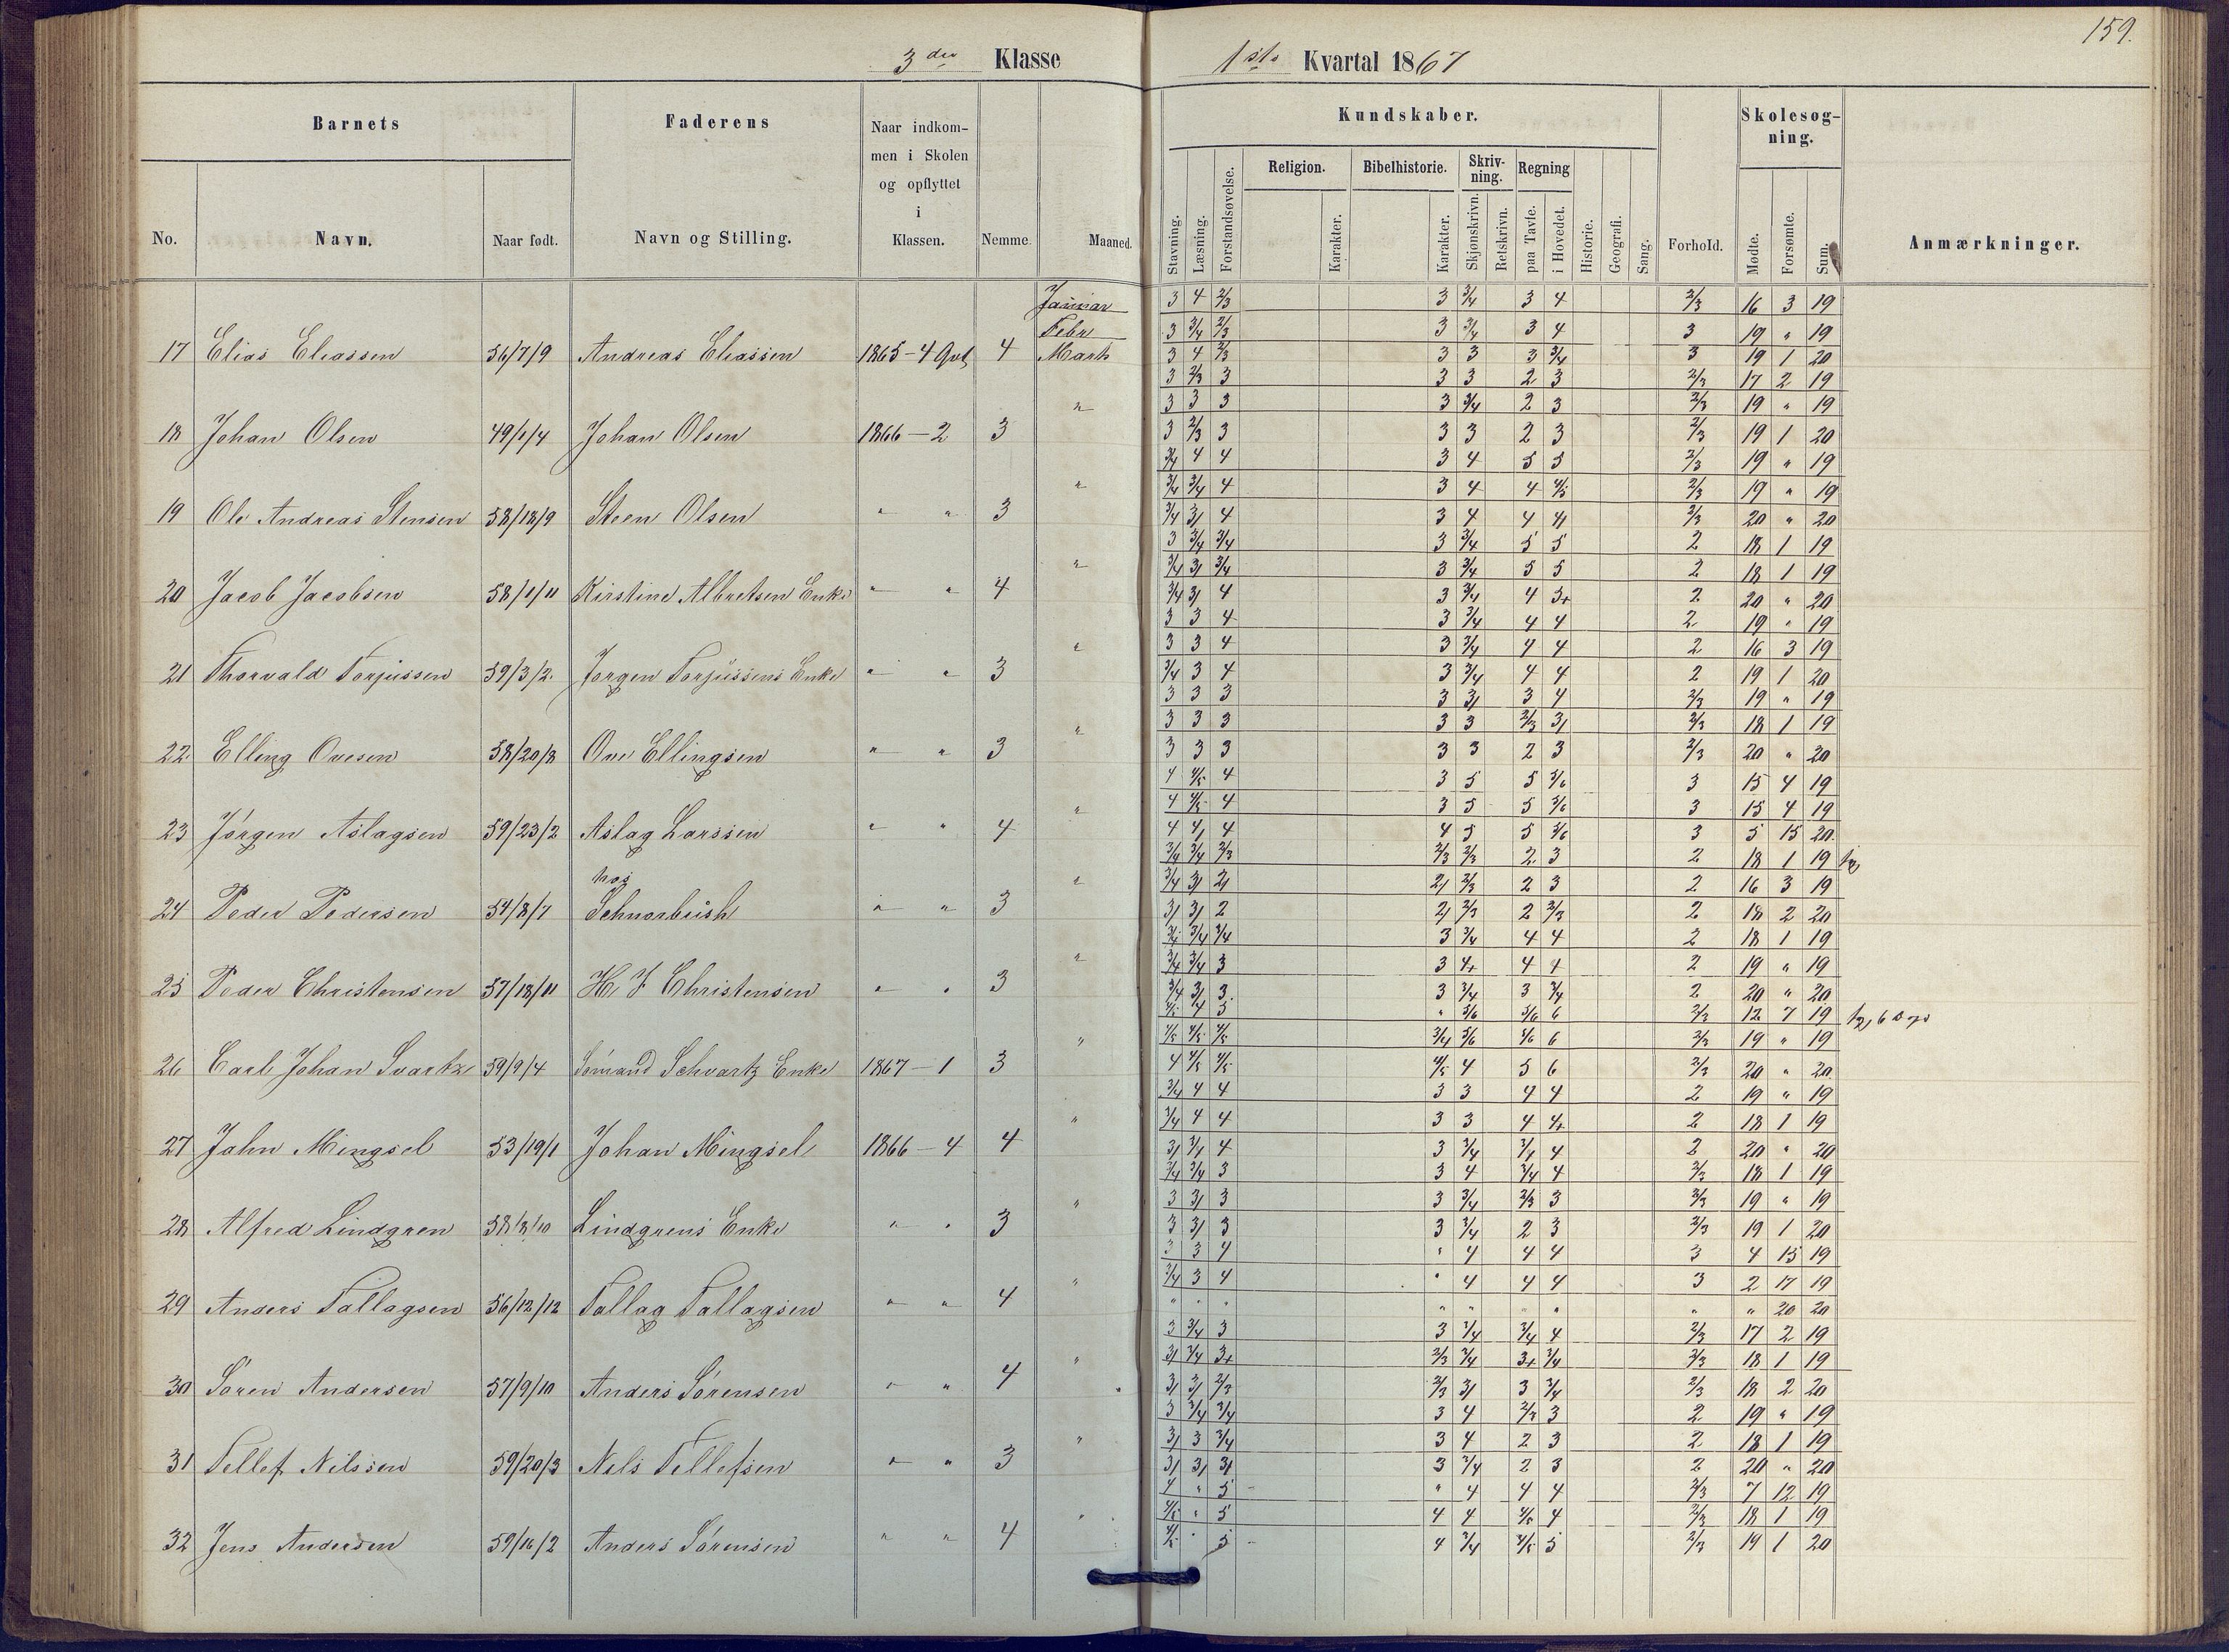 159.
3die Klasse
1ste Kvartal 1867
Barnets
Faderens
Naar indkom-
men i Skolen
og opflyttet
i
Klassen.
No.
Navn.
Naar født.
Navn og Stilling.
Nemme.
Maaned.
Kundskaber.
Stavning.
Læsning.
Forstandsøvelse.
Religion.
Karakter.
Bibelhistorie.
Karakter.
Skriv-
ning.
Skjønskrivn.
Retskrivn.
Regning
paa Tavle.
i Hovedet.
Historie.
Geografi.
Sang.
Forhold.
Skolesøg-
ning.
Mødte.
Forsømte.
Sum.
Anmærkninger.
Januar 3 4 2/3 3 3/4 3 4 2/3 16 3 19
Febr 3 3/4 2/3 3 3/4 3 4 3 19 " 19
17 Elias Eliassen 56/7/9 Andreas Eliassen 1865-4 Qvt 4 Marts 3 4 2/3 3 3 3 3/4 3 19 1 20
3 2/3 3 3 3 2 3 2/3 17 2 19
" 3 3 3 3 3/4 2 3 2/3 19 " 19
18 Johan Olsen 49/1/4 Johan Olsen 1866-2 3 3 2/3 3 3 3 2 3 2/3 19 1 20
3/4 4 4 3 4 5 5 2/3 19 " 19
" 3/4 3/4 4 3 4 4 4/5 2/3 19 " 19
19 Ole Andreas Stensen 58/18/9 Steen Olsen " " 3 3/4 3/ 4 3 4 4 4/ 2/3 20 " 20
3 3/4 3/4 3 3/4 5 5 2 18 1 19
" 3/4 3/ 3/4 3 3/4 5 5 2 18 1 19
20 Jacob Jacobsen 58/1/11 Kirstine Albretsen Enke " " 4 3/4 3/ 4 3 3/4 4 3+ 2 20 " 20
3 3 4 3 3/4 4 4 2 19 " 19
" 3 3 4 3 3/4 4 4 2 16 3 19
21 Thorvald Torjussen 59/3/2 Jørgen Torjussens Enke " " 3 3/4 3 4 3 3/4 4 4 2 19 1 20
3 3 3 3 3/ 3 4 2/3 19 " 19
" 3 3 3 3 3 2/3 3/ 2/3 18 1 19
22 Elling Ovesen 58/20/8 Ove Ellingsen " " 3 3 3 3 3 3 2 3 2/3 20 " 20
4 4/5 4 3 5 5 5/6 3 15 4 19
" 4 4/5 4 3 5 5 5/6 3 15 4 19
23 Jørgen Aslagsen 59/23/2 Aslag Larssen " " 4 4 4/ 4 4 5 5 5/6 3 5 15 20
3/4 3/4 2/3 2/3 2/3 2 3 2 18 1 19
hos " 3/4 3/ 2/ 2/ 2/3 2 3 2 16 3 19
24 Peder Pedersen 54/8/7 Schnorbush " " 3 3/ 3/ 2 2/ 2/3 2 2/3 2 18 2 20
3/4 3/4 3/4 3 3/4 4 4 2 18 1 19
" 3/4 3/4 3 3 4+ 4 4 2 19 " 19
25 Peder Christensen 57/18/11 H. J Christensen " " 3 3/4 3/ 3 3 3/4 3 3/4 2 20 " 20
4/5 4 5 " 5/6 5/6 6 2/3 12 7 19
" 4/5 4/5 4/5 3/4 5/6 5/6 6 2/3 19 " 19
26 Carl Johan Svartz 59/9/4 Sømand Schvartz Enke 1867-1 3 4 4/5 4/5 4/5 4 5 6 2/3 20 " 20
3/4 4 4 3 3 4 4 2 19 " 19
" 3/4 4 4 3 3 4 4+ 2 18 1 19
27 John Mingsel 53/19/1 Johan Mingsel 1866-4 4 3/ 3/4 4 3 3/4 3/4 4 2 20 " 20
3/4 3/4 3 3 4 3/4 4 2/3 18 1 19
" 3 3/ 3 3 3/4 2/3 3 2/3 19 " 19
28 Alfred Lindgren 58/8/10 Lindgrens Enke " " 3 3 3/ 3 3 3/4 2 3 2/3 19 1 20
3 3 4 " 4 4 4 3 4 15 19
" 3/4 3 4 " 4 4 4 3 2 17 19
29 Anders Tallagsen 56/12/12 Tallag Tallagsen " " 4 " " " " " " " " " 20 20
3 3/4 3 3 3/4 3/4 4 2/3 17 2 19
" 3/ 3/4 3+ 2/3 3/4 3+ 3/4 2/3 18 1 19
30 Søren Andersen 57/9/10 Anders Sørensen " " 4 3/ 3/ 2/3 2/3 3/ 3 3/4 2/3 18 2 20
3 3/4 3/4 3 4 2/3 3 2 19 " 19
" 3/ 3 3/4 3 4 2 3 2 18 1 19
31 Tellef Nilssen 59/20/3 Nils Tellefsen " " 3 3/ 3/ 3/ 3 3/4 2 3 2 20 " 20
4 " 5 " 4 4 4 2/3 7 12 19
" 4/5 " 5 4 4 4/5 4 2/3 18 1 19
32 Jens Andersen 59/16/2 Anders Sørensen " " 4 4/5 " 5 4 3/4 4/5 5 2/3 19 1 20